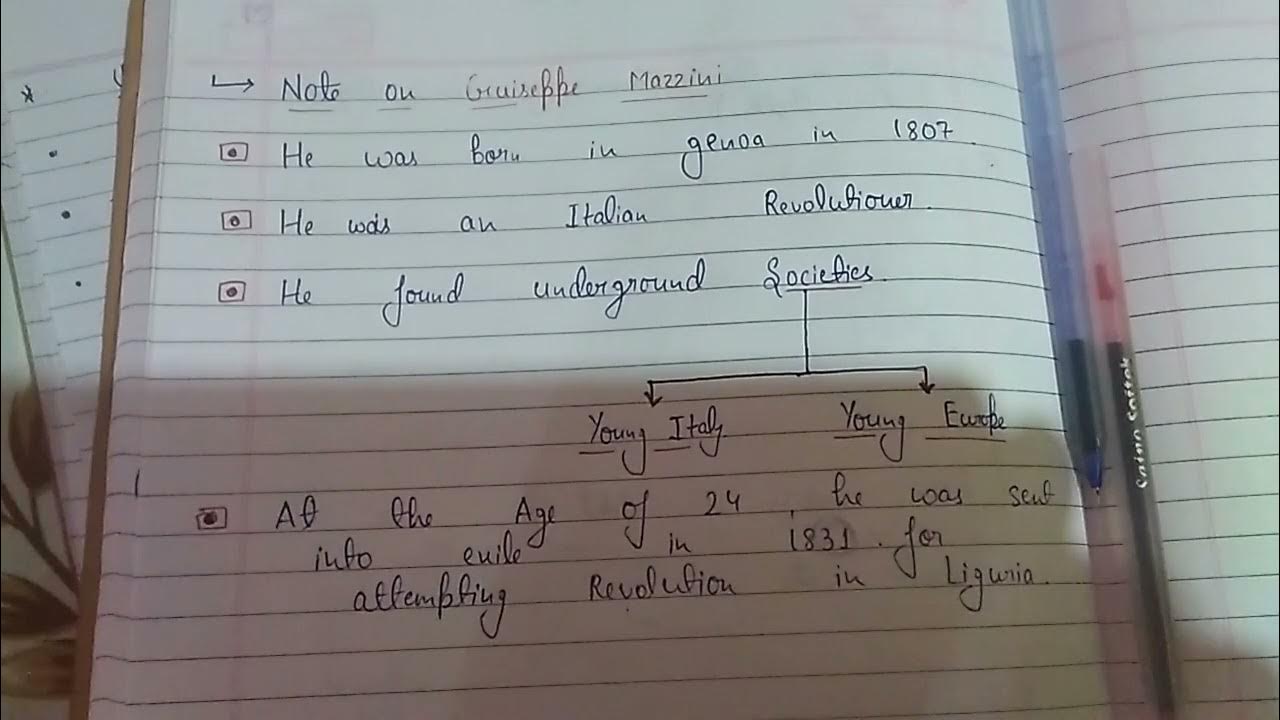 Note on Guiseppe Mazzini
He was born in genoa in 1807
He was an Italian Revolutioner.
He found underground Societies.
Young Italy Young Europe
At the Age of 24, he was sent
into exile in 1831. for
attempting Revolution in Liguria.